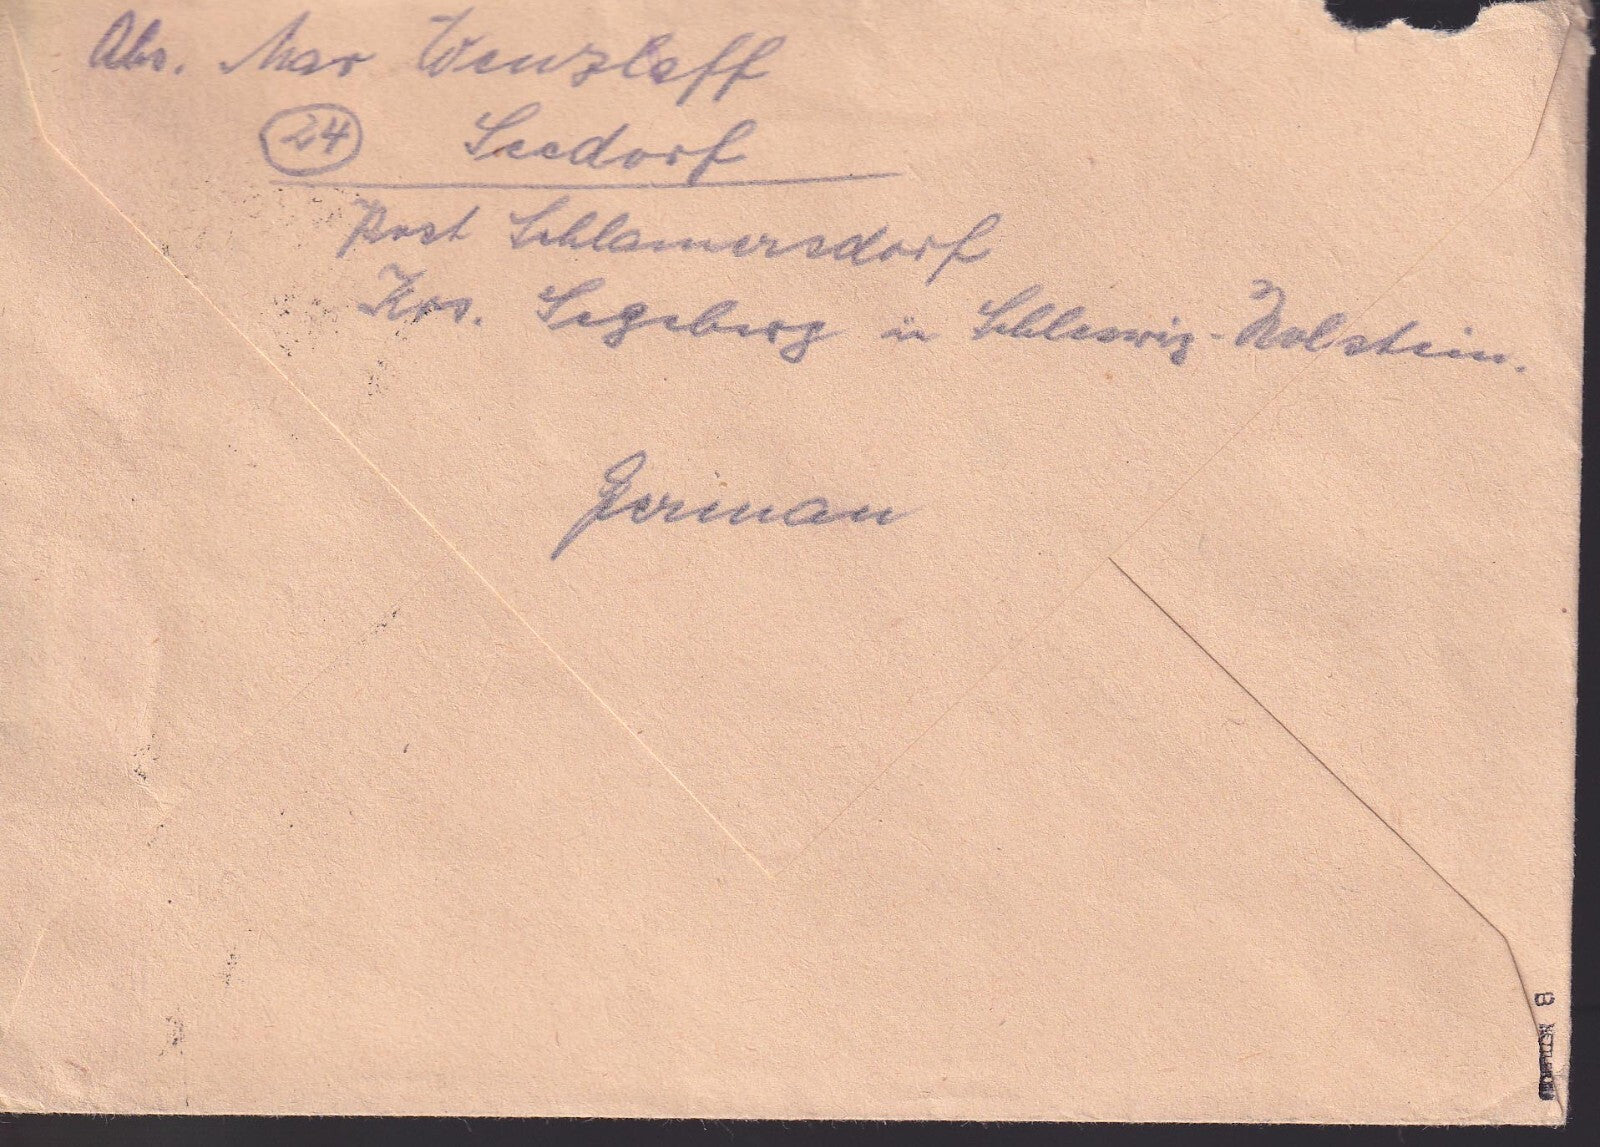 Abs. Max Wenzlaff
24 Seedorf
Post Schlamersdorf
Krs. Segeberg in Schleswig-Holstein.
German
B